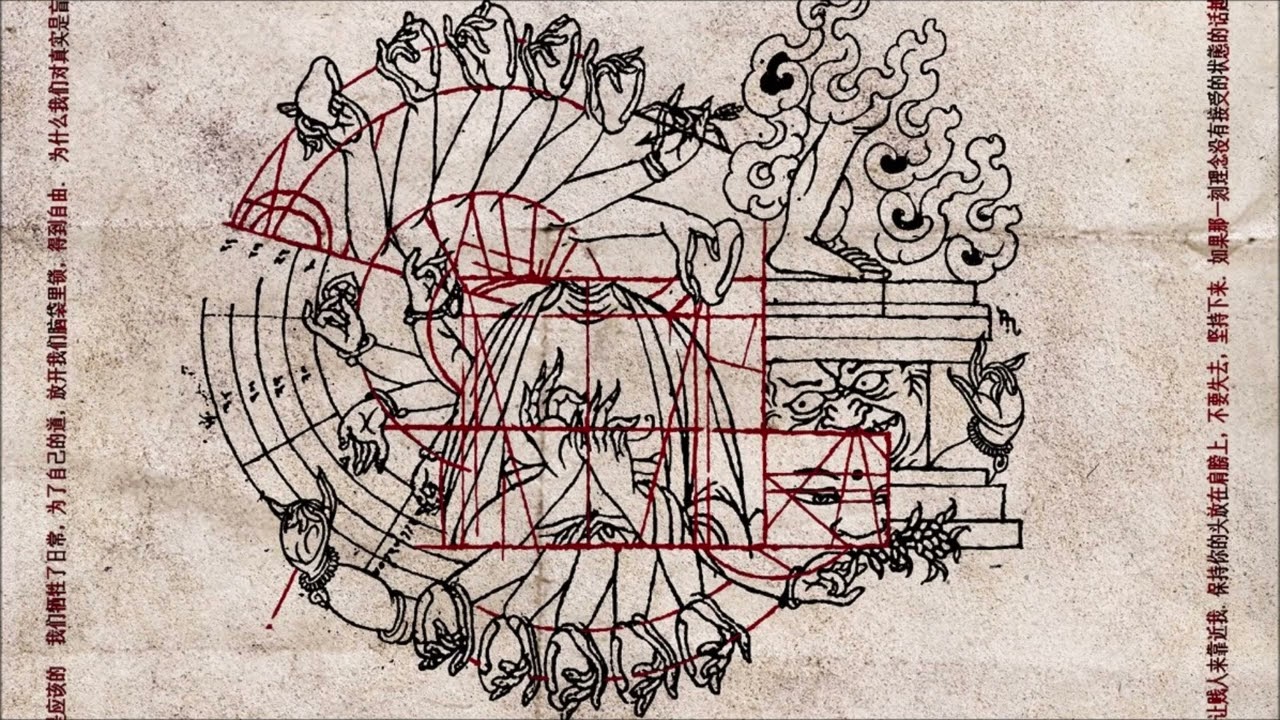 应该的 我们牺牲了日常，为了自己的道，放开我们脑袋里锁，得到自由．为什么我们对真实是盲
让贱人来靠近我．保持你的头放在肩膀上，不要失去，坚持下来．如果那一刻理念没有接受的状態的话越